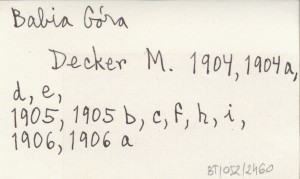 Babia Góra
Decker M. 1904, 1904a,
d, e,
1905, 1905 b, c, f, h, i,
1906, 1906 a
BT/052/2460